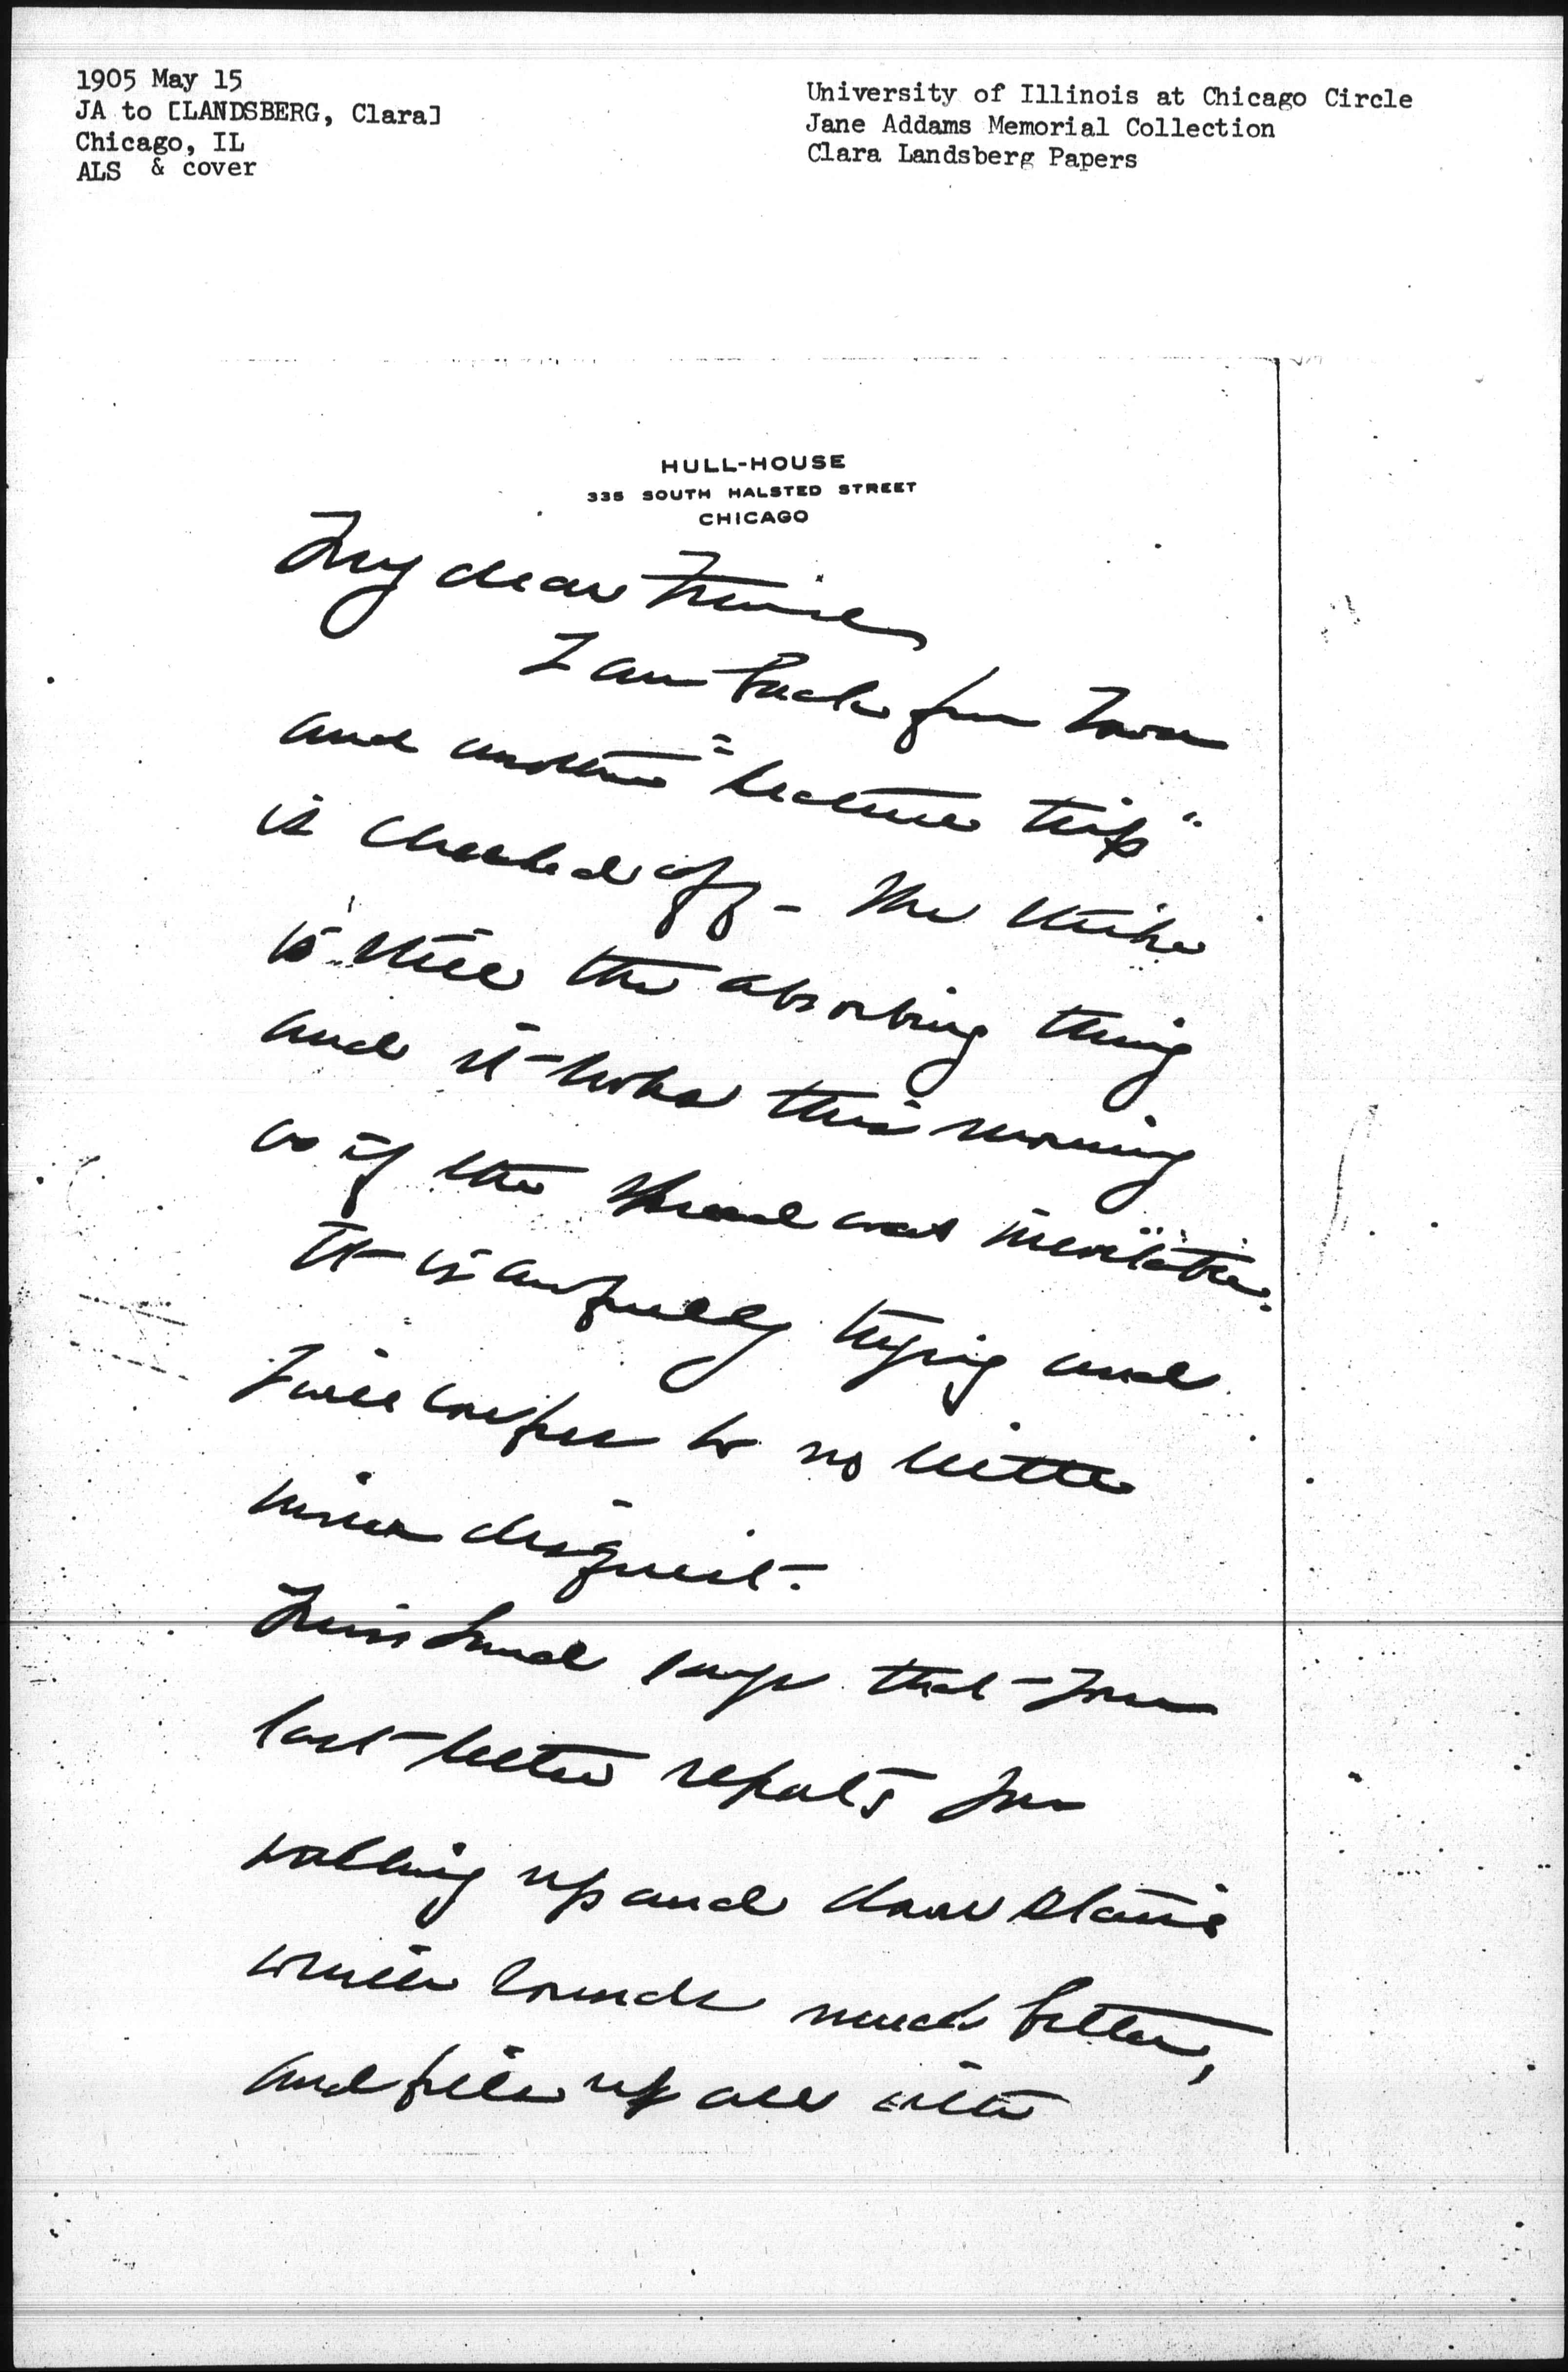 1905 May 15
JA to [LANDSBERG, Clara]
Chicago, IL
ALS & cover
University of Illinois at Chicago Circle
Jane Addams Memorial Collection
Clara Landsberg Papers
HULL-HOUSE
335 SOUTH HALSTED STREET
CHICAGO
My dear Friend
I am back from Iowa
and another "lecture trip"
is checked off - The strike
is still the absorbing thing
and it looks this morning
as if the spread was inevitable.
It is awfully trying and
I will confess to no little
inner disquiet.
Miss Smith says that your
last letter reports you
walking up and down stairs
which sounds much better,
and fills us all with